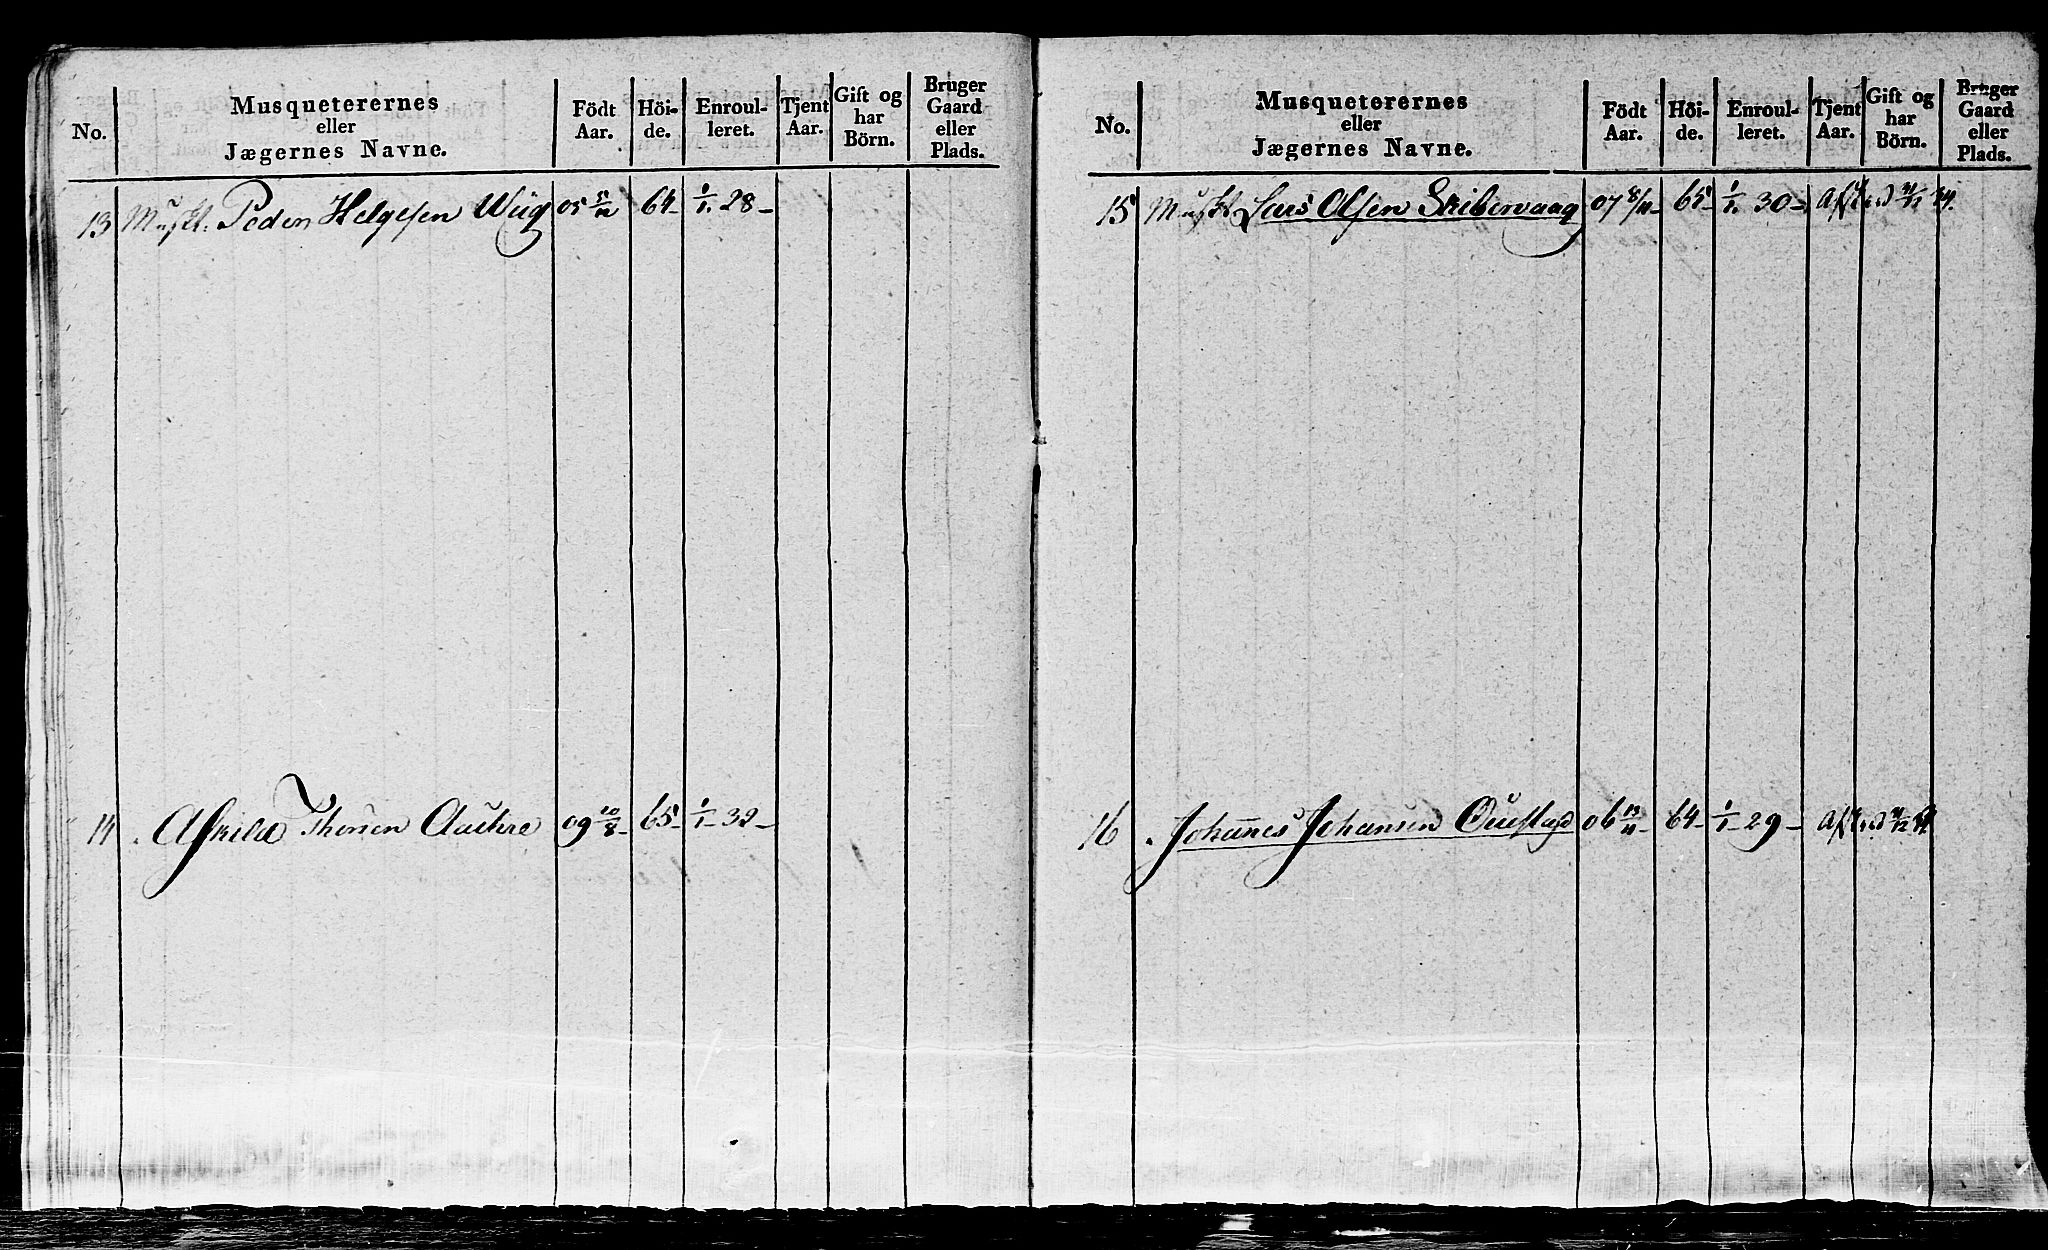 No.
Musqueterernes
eller
Jægernes Navne.
Födt
Aar.
Höi-
de.
Enroul-
leret.
Tjent
Aar.
Gift og
har
Börn.
Bruger
Gaard
eller
Plads.
13 Muskt. Peder Helgesen Wiig 05 64 - 1/1. 28 -
14 . Thorsen 09 10/8 - 65 - 1/1 - 32 -
No.
Musqueterernes
eller
Jægernes Navne.
Födt
Aar.
Höi-
de.
Enroul-
leret.
Tjent
Aar.
Gift og
har
Börn.
Bruger
Gaard
eller
Plads.
15 Muskt Lars Olsen Skibervaag 07 8/11 - 65 - 1/1. 30 - Afsked 34.
16 . Johannes Johansen 06 13/11 - 64 - 1/1 - 29 - Afsked 34